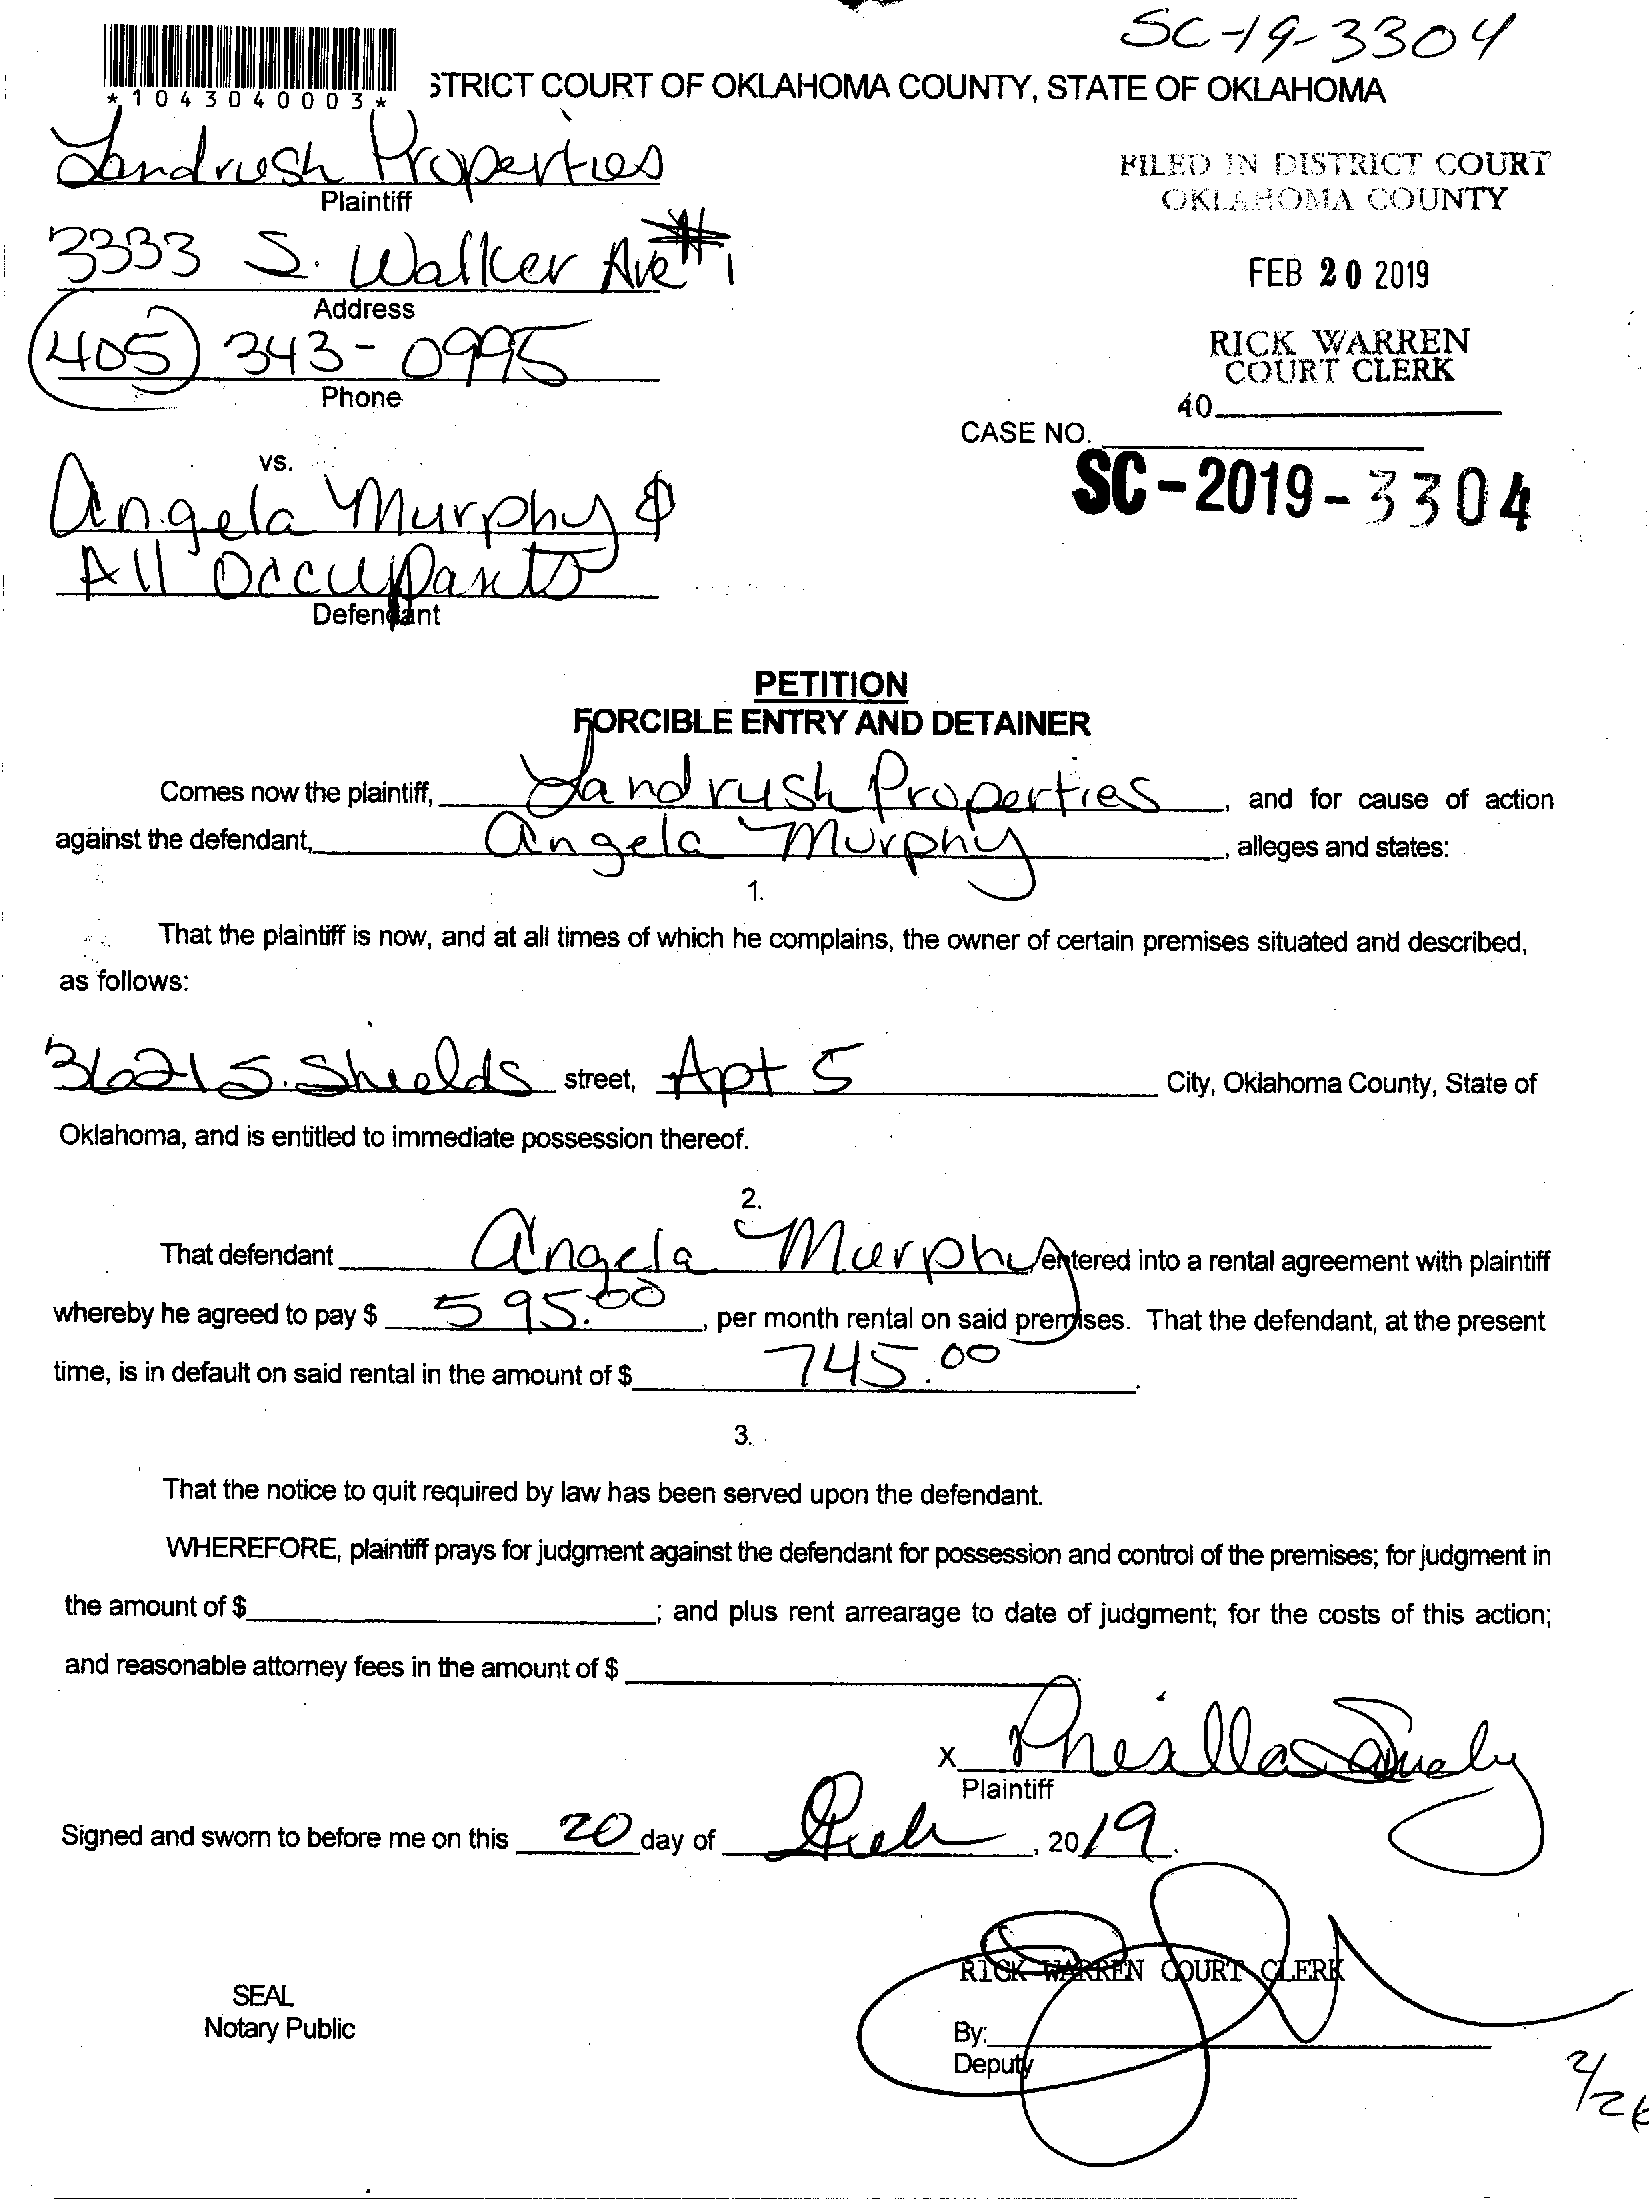 SC-19-3304
*1043040003*
STRICT COURT OF OKLAHOMA COUNTY, STATE OF OKLAHOMA
Landrush Properties
Plaintiff
FILED IN DISTRICT COURT
OKLAHOMA COUNTY
3333 S. Walker Ave #1
Address
FEB 20 2019
(405) 343-0995
Phone
RICK WARREN
COURT CLERK
40
CASE NO.
SC-2019-3304
vs.
Angela Murphy &
All Occupants
Defendant
PETITION
FORCIBLE ENTRY AND DETAINER
Comes now the plaintiff, Landrush Properties, and for cause of action
against the defendant, Angela Murphy, alleges and states:
1.
That the plaintiff is now, and at all times of which he complains, the owner of certain premises situated and described,
as follows:
3621 S. Shields street, Apt 5 City, Oklahoma County, State of
Oklahoma, and is entitled to immediate possession thereof.
2.
That defendant Angela Murphy entered into a rental agreement with plaintiff
whereby he agreed to pay $ 595.00, per month rental on said premises. That the defendant, at the present
time, is in default on said rental in the amount of $ 745.00.
3.
That the notice to quit required by law has been served upon the defendant.
WHEREFORE, plaintiff prays for judgment against the defendant for possession and control of the premises; for judgment in
the amount of $ ; and plus rent arrearage to date of judgment; for the costs of this action;
and reasonable attorney fees in the amount of $
X
Plaintiff
Signed and sworn to before me on this 20 day of Feb, 2019.
RICK WARREN COURT CLERK
SEAL
Notary Public
By:
Deputy